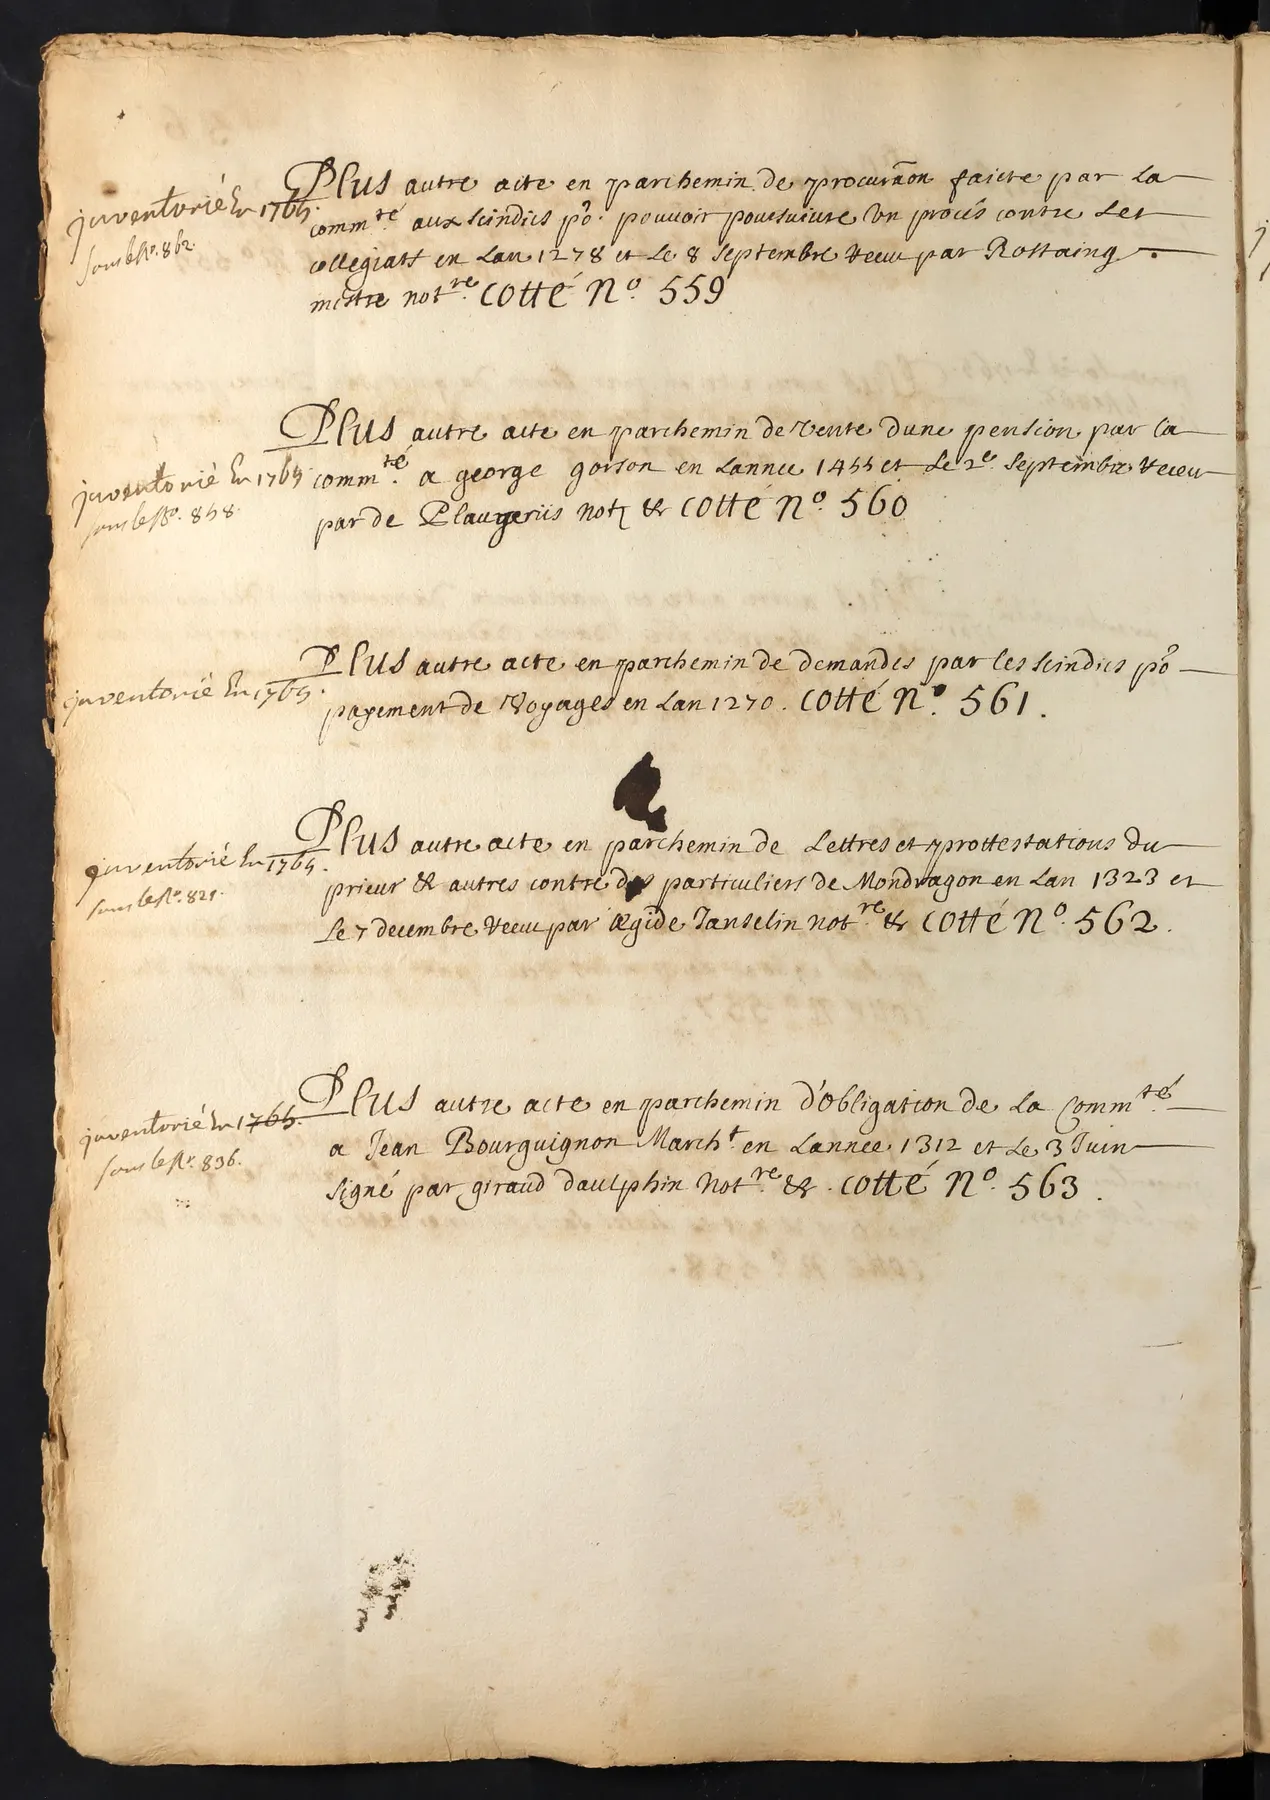 inventorié En 1765.
sous le No. 862.
Plus autre acte en parchemin de procura͠on faicte par La
comm.té aux scindics po͠. pouvoir poursuivre Un procés contre Les
collegiats en Lan 1278 et Le 8 septembre receu par Rostaing
mestre not.re cotté No. 559
inventorié En 1765
sous le No. 858.
Plus autre acte en parchemin de vente dune pension par la
comm.té a george gorson en Lannee 1455 et Le 2e. septembre receu
par de Plaugeriis not & cotté No. 560
inventorié En 1765.
Plus autre acte en parchemin de demandes par les scindics po͠
payement de voyages en Lan 1270. cotté No. 561.
inventorié En 1765.
sous le No. 821.
Plus autre acte en parchemin de Lettres et prottestations du
prieur & autres contre des particuliers de Mondragon en Lan 1323 et
Le 7 decembre receu par Ægide Janselin not.re & cotté No. 562.
inventorié En 1765.
sous le No. 836.
Plus autre acte en parchemin d'obligation de La Comm.té
a Jean Bourguignon March.t en Lannee 1312 et Le 3 Juin
signé par giraud daulphin not.re & cotté No. 563.